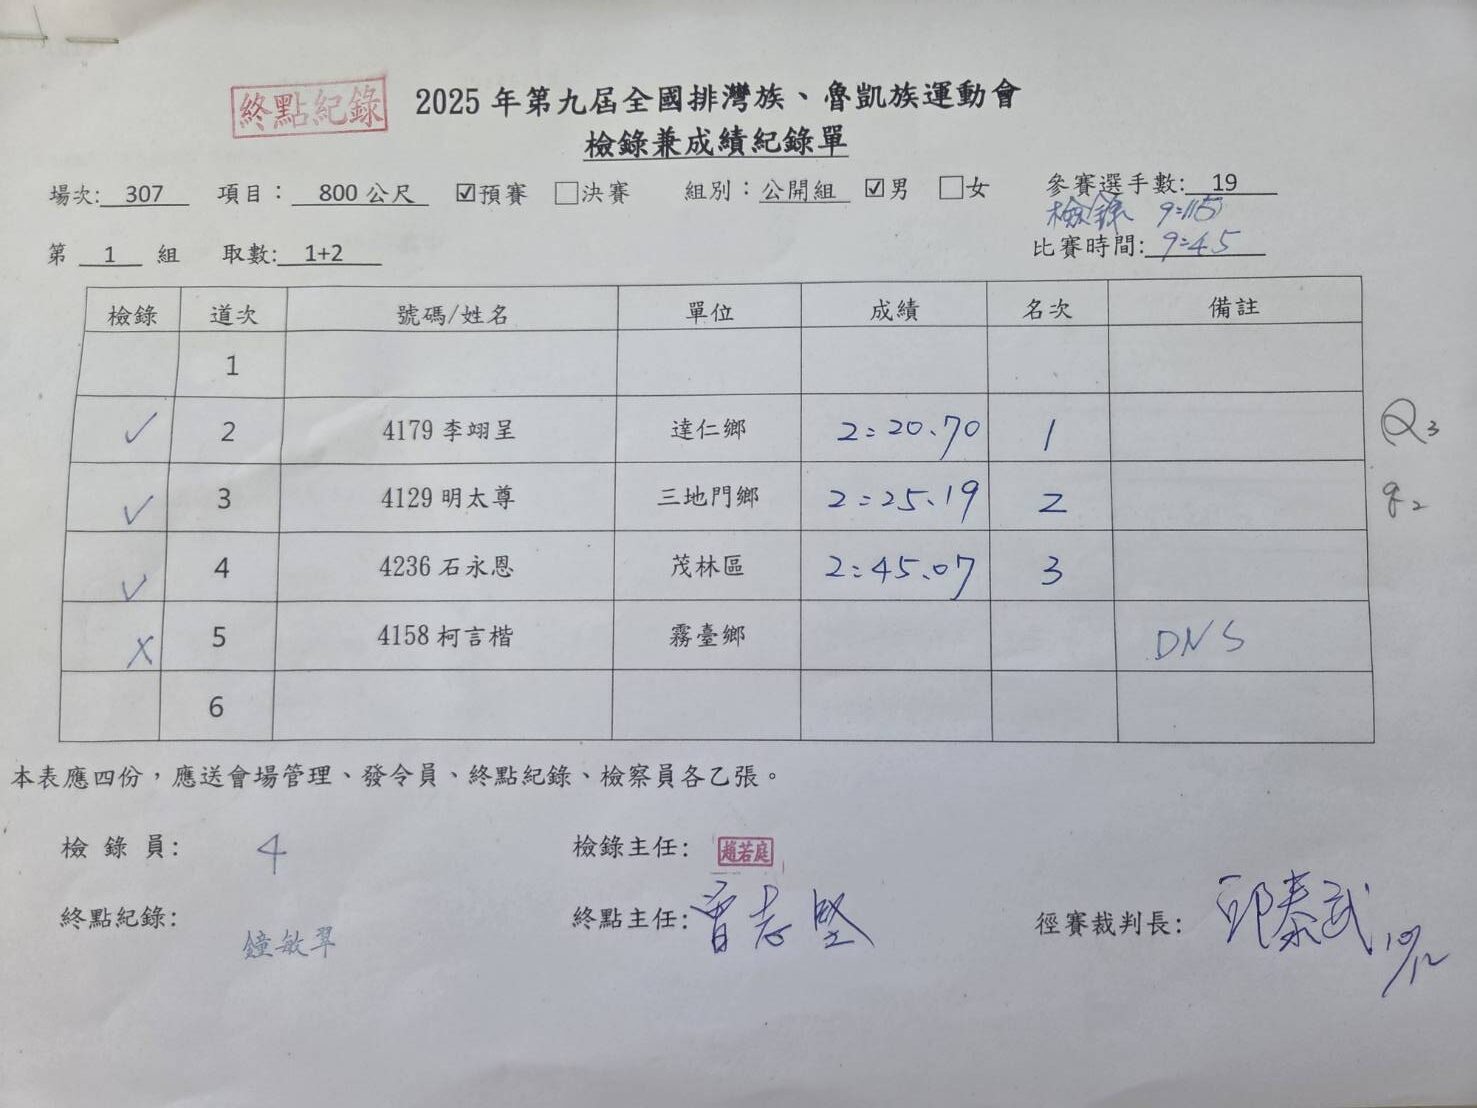 終點紀錄
2025 年第九屆全國排灣族、魯凱族運動會
檢錄兼成績紀錄單
場次: 307 項目： 800 公尺 ☑預賽 □決賽 組別：公開組 ☑男 □女 參賽選手數: 19
檢錄 9:15
第 1 組 取數: 1+2 比賽時間: 9:45
檢錄 道次 號碼/姓名 單位 成績 名次 備註
1
✓ 2 4179 李翊呈 達仁鄉 2:20.70 1 Q3
✓ 3 4129 明太尊 三地門鄉 2:25.19 2 q2
✓ 4 4236 石永恩 茂林區 2:45.07 3
X 5 4158 柯言楷 霧臺鄉 DNS
6
本表應四份，應送會場管理、發令員、終點紀錄、檢察員各乙張。
檢 錄 員: 4 檢錄主任: 趙若庭
終點紀錄: 鐘敏翠 終點主任: 曾志堅 徑賽裁判長: 邱泰武 10/12